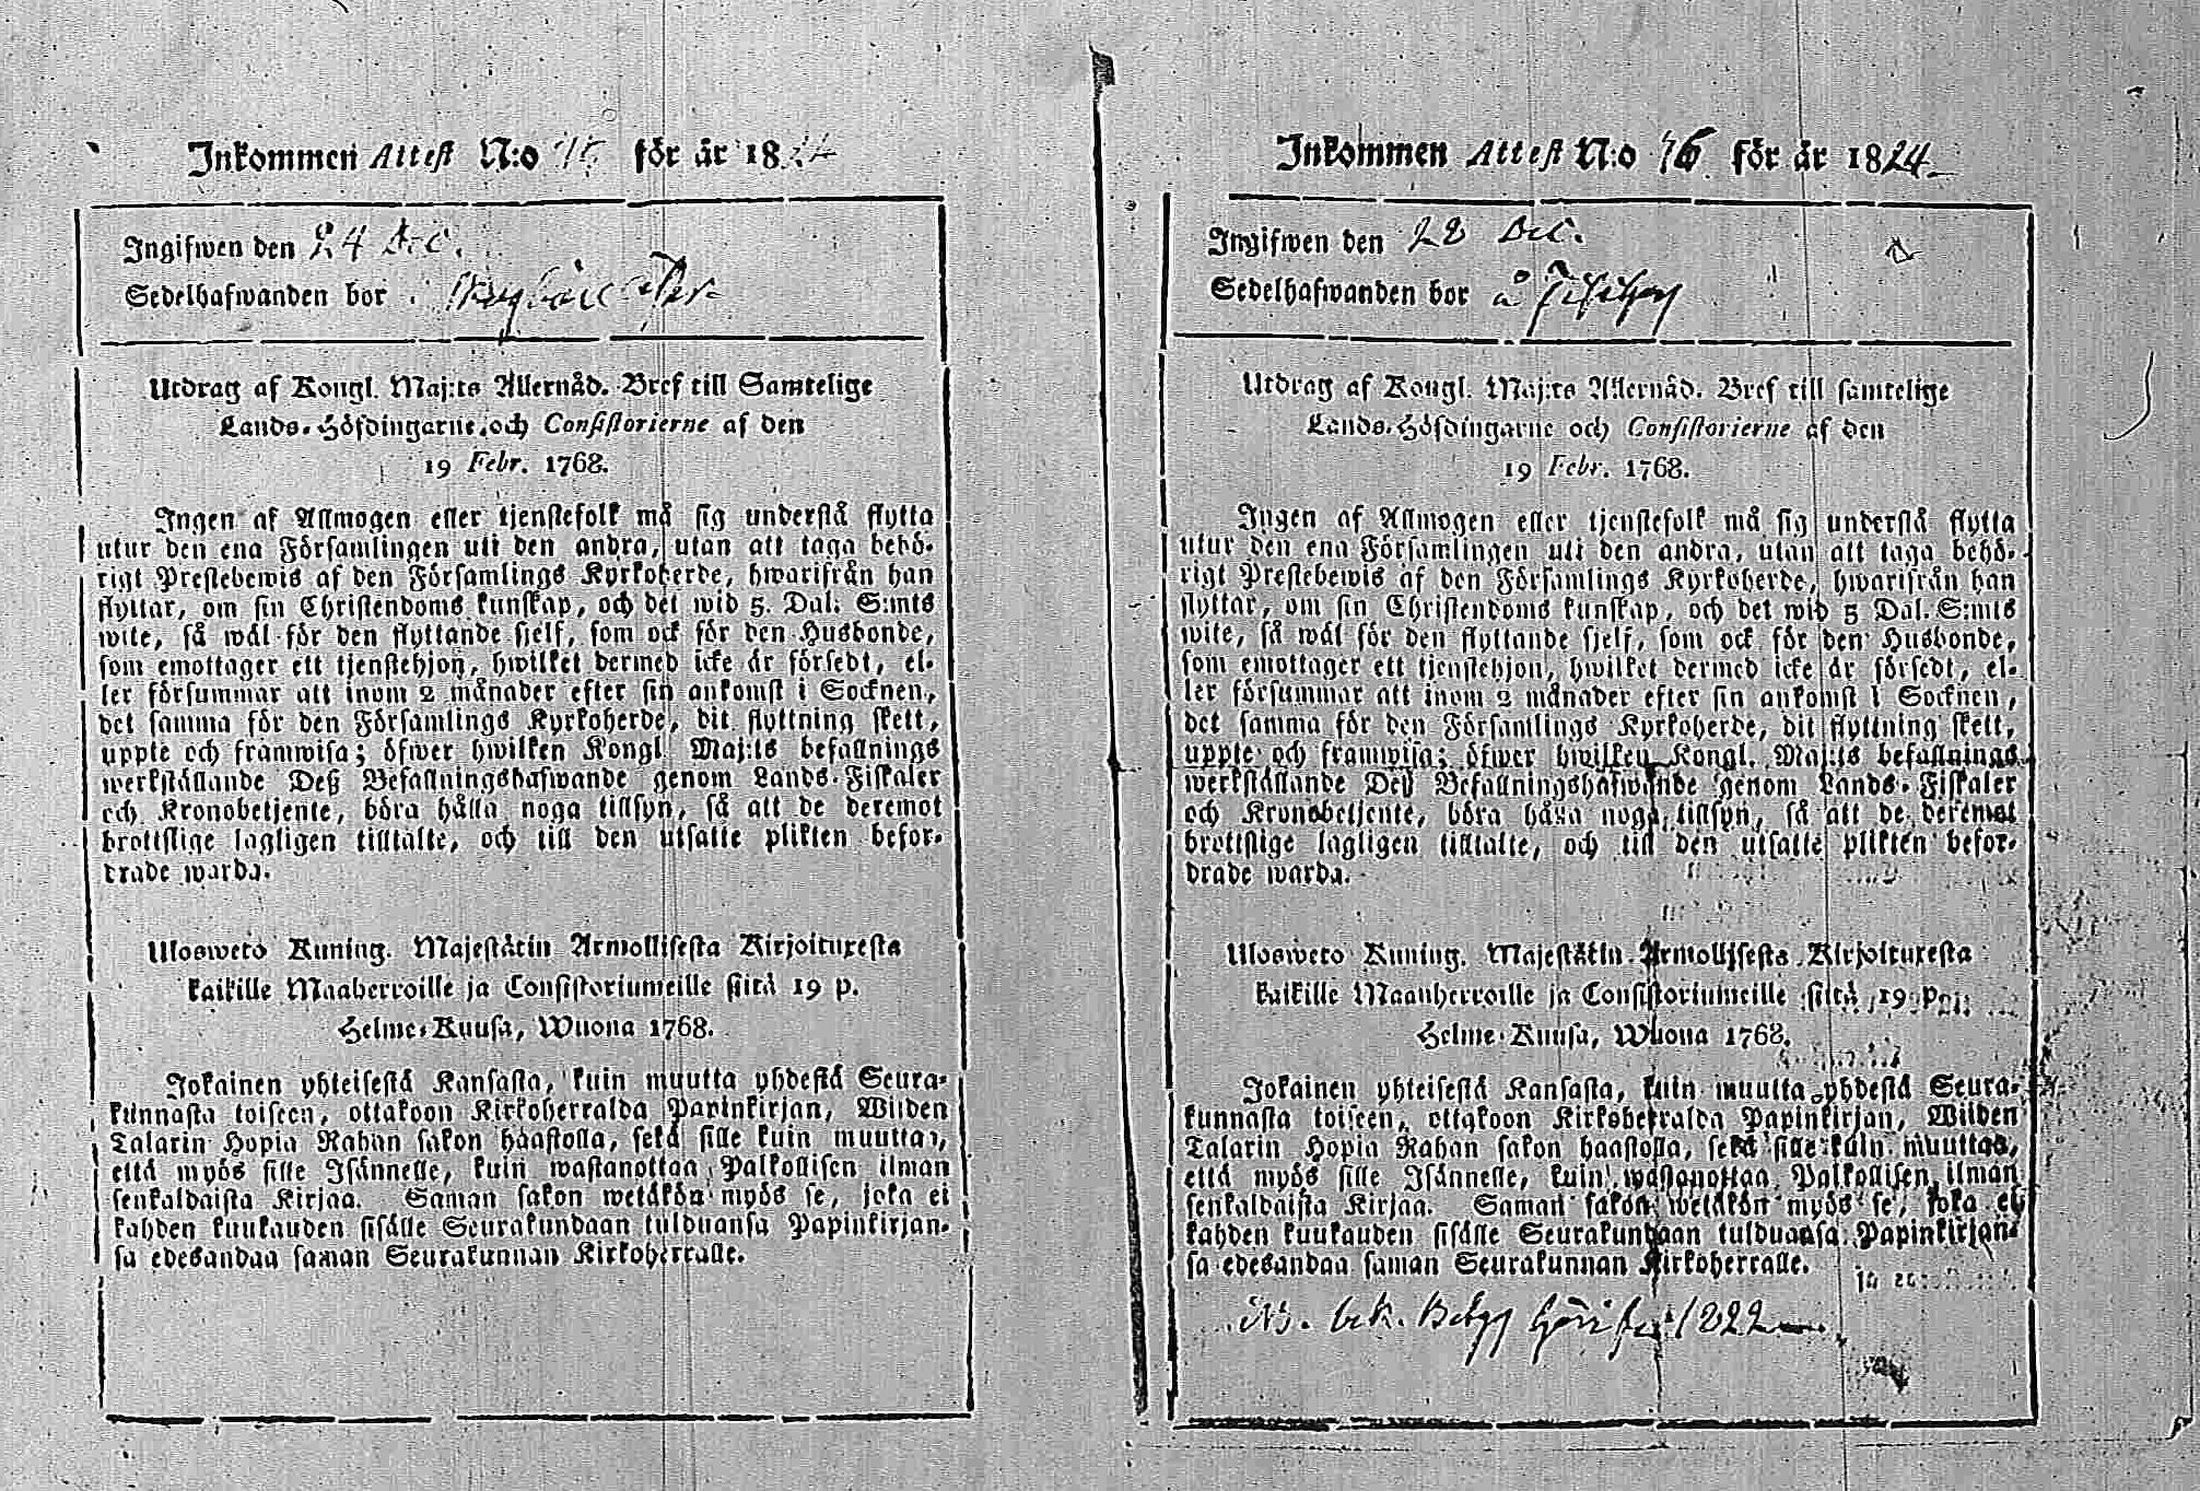 Inkommen Attest N:o för år 18
Ingifwen den 24 Dec.
Sedelhafwanden bor
Utdrag af Kongl. Maj:ts Allernåd. Bref till Samtelige
Lands-Höfdingarne och Consistorierne af den
19 Febr. 1768.
Ingen af Allmogen eller tjenstefolk må sig understå flytta
utur den ena Församlingen uti den andra, utan att taga behö-
rigt Prestebewis af den Församlings Kyrkoherde, hwarifrån han
flyttar, om sin Christendoms kunskap, och det wid 5. Dal. S:mts
wite, så wäl för den flyttande sjelf, som ock för den Husbonde,
som emottager ett tjenstehjon, hwilket dermed icke är försedt, el-
ler försummar att inom 2 månader efter sin ankomst i Socknen,
det samma för den Församlings Kyrkoherde, dit flyttning skett,
uppte och framwisa; öfwer hwilken Kongl. Maj:ts befallnings
werkställande Deß Befallningshafwande genom Lands-Fiskaler
och Kronobetjente, böra hålla noga tillsyn, så att de deremot
brottslige lagligen tilltalte, och till den utsatte plikten befor-
drade warda.
Ulosweto Kuning. Majestätin Armollisesta Kirjoituxesta
kaikille Maaherroille ja Consistoriumeille siitä 19 p.
Helme-Kuusa, Wuona 1768.
Jokainen yhteisestä Kansasta, kuin muutta yhdestä Seura-
kunnasta toiseen, ottakoon Kirkoherralda Papinkirjan, Wiiden
Talarin Hopia Rahan sakon haastolla, sekä sille kuin muuttaa,
että myös sille Isännelle, kuin wastanottaa Palkollisen ilman
senkaldaista Kirjaa. Saman sakon wetäkön myös se, joka ei
kahden kuukauden sisälle Seurakundaan tulduansa Papinkirjan-
sa edesandaa saman Seurakunnan Kirkoherralle.
Inkommen Attest N:o 76 för år 1824.
Ingifwen den 28 Dec.
Sedelhafwanden bor å
Utdrag af Kongl. Maj:ts Allernåd. Bref till samtelige
Lands-Höfdingarne och Consistorierne af den
19 Febr. 1768.
Ingen af Allmogen eller tjenstefolk må sig understå flytta
utur den ena Församlingen uti den andra, utan att taga behö-
rigt Prestebewis af den Församlings Kyrkoherde, hwarifrån han
flyttar, om sin Christendoms kunskap, och det wid 5 Dal. S:mts
wite, så wäl för den flyttande sjelf, som ock för den Husbonde,
som emottager ett tjenstehjon, hwilket dermed icke är försedt, el-
ler försummar att inom 2 månader efter sin ankomst i Socknen,
det samma för den Församlings Kyrkoherde, dit flyttning skett,
uppte och framwisa; öfwer hwilken Kongl. Maj:ts befallnings
werkställande Deß Befallningshafwande genom Lands-Fiskaler
och Kronobetjente, böra hålla noga tillsyn, så att de deremot
brottslige lagligen tilltalte, och till den utsatte plikten befor-
drade warda.
Ulosweto Kuning. Majestätin Armollisesta Kirjoituxesta
kaikille Maanherroille ja Consistoriumeille siitä 19 p.
Helme-Kuusa, Wuona 1768.
Jokainen yhteisestä Kansasta, kuin muutta yhdestä Seura-
kunnasta toiseen, ottakoon Kirkoherralda Papinkirjan, Wiiden
Talarin Hopia Rahan sakon haastolla, sekä sille kuin muuttaa,
että myös sille Isännelle, kuin wastanottaa Palkollisen ilman
senkaldaista Kirjaa. Saman sakon wetäkön myös se, joka ei
kahden kuukauden sisälle Seurakundaan tulduansa Papinkirjan-
sa edesandaa saman Seurakunnan Kirkoherralle.
1822